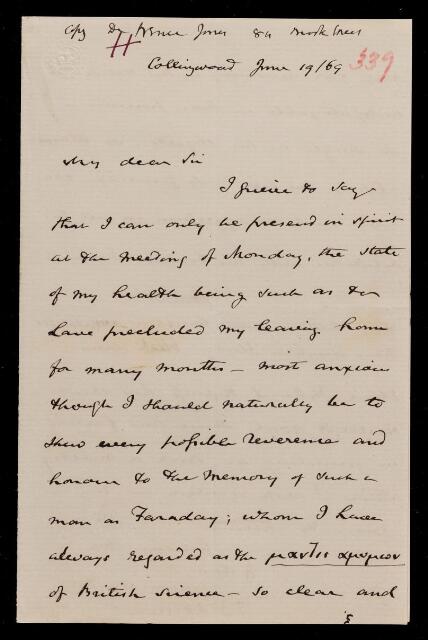 Copy Dr Bence Jones 84 Brook Street
H
Collingwood June 19/69
339
My dear Sir
I grieve to say
that I can only be present in spirit
at the meeting of Monday, the state
of my health being such as to
have precluded my leaving home
for many months – most anxious
though I should naturally be to
shew every possible reverence and
honour to the memory of such a
man as Faraday; whom I have
always regarded as the μαντις αμυμων
of British science – so clear and